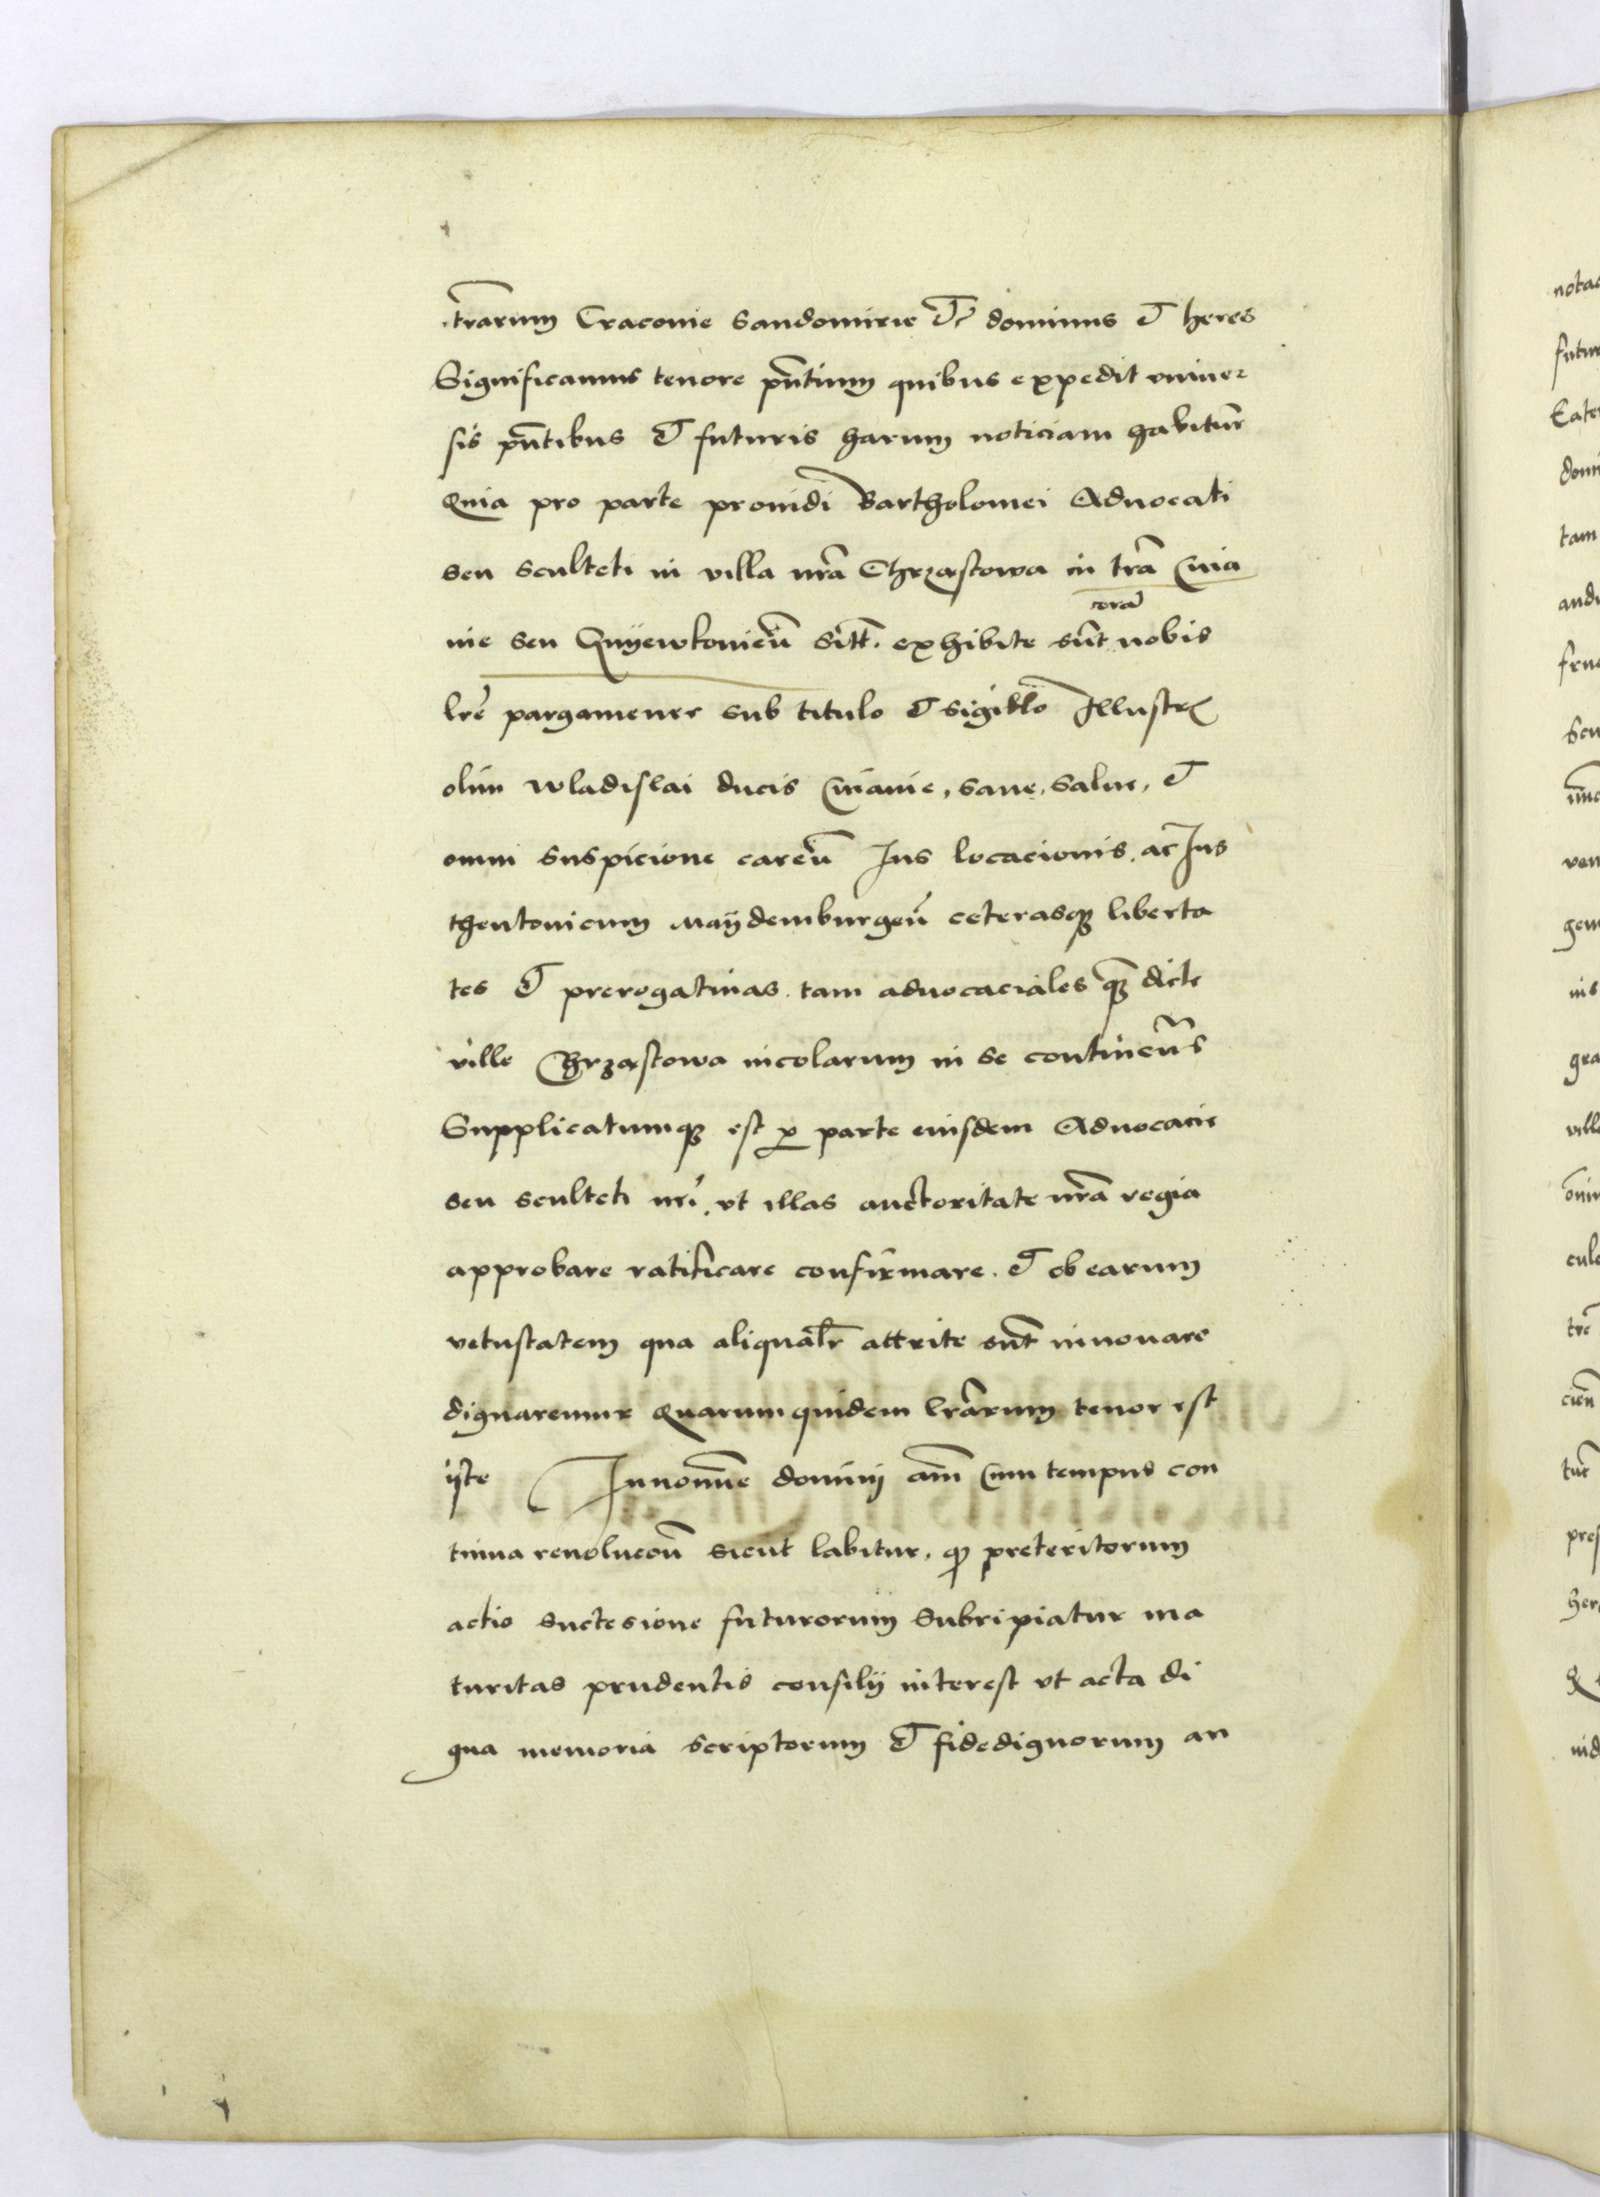 t̄rarum Cracovie Sandomirie Etc̄ dominus Et heres
Significamus tenore pn̄tium quibus expedit univer
sis pn̄tibus Et futuris harum noticiam habitur̄
Quia pro parte providi Bartholomei Advocati
seu sculteti in villa nr̄a Chrzastowa in tr̄a Cuia
vie seu Gnyewkovien̄ sitt. exhibite sūnt corā nobis
lr̄e pargamenee sub titulo Et sigillo Illustris
olim wladislai ducis Cuiavie, sane, salve, Et
omni suspicione caren̄ Ius locacionis ac Ius
theutonicum Maydemburgen̄ ceterasq liberta
tes Et prerogativas tam advocaciales q̄ dicte
ville Chrzastowa incolarum in se continen̄s
Supplicatumq est p parte eiusdem Advocacie
seu sculteti nr̄i, ut illas auctoritate nr̄a regia
approbare ratificare confirmare Et ob earum
vetustatem qua aliqualr̄ attrite sūnt innovare
dignaremur Quarum quidem lr̄arum tenor est
iste In nomīne dominij am̄ Cum tempus con
tinua revolucōn sicut labitur, q preteritorum
actio suctesione futurorum subripiatur ma
turitas prudentis consilij interest ut acta di
gna memoria scriptorum Et fidedignorum an
notac
futur
Kater
domi
tam
vill